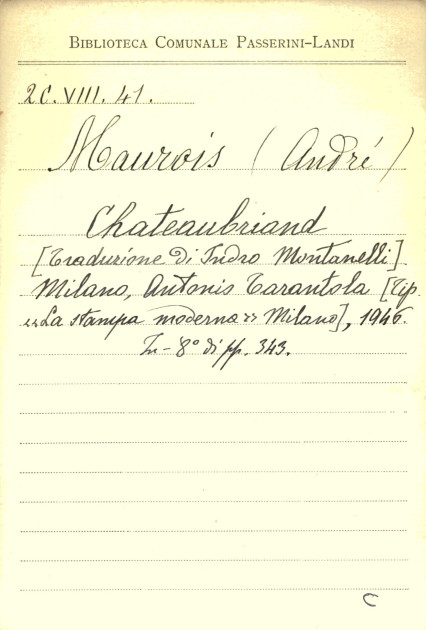 BIBLIOTECA COMUNALE PASSERINI-LANDI
2C. VIII. 41.
Maurois (André)
Chateaubriand
[Traduzione di Indro Montanelli]
Milano, Antonio Tarantola [Tip.
"La stampa moderna" Milano], 1946.
In-8° di pp. 343.
C